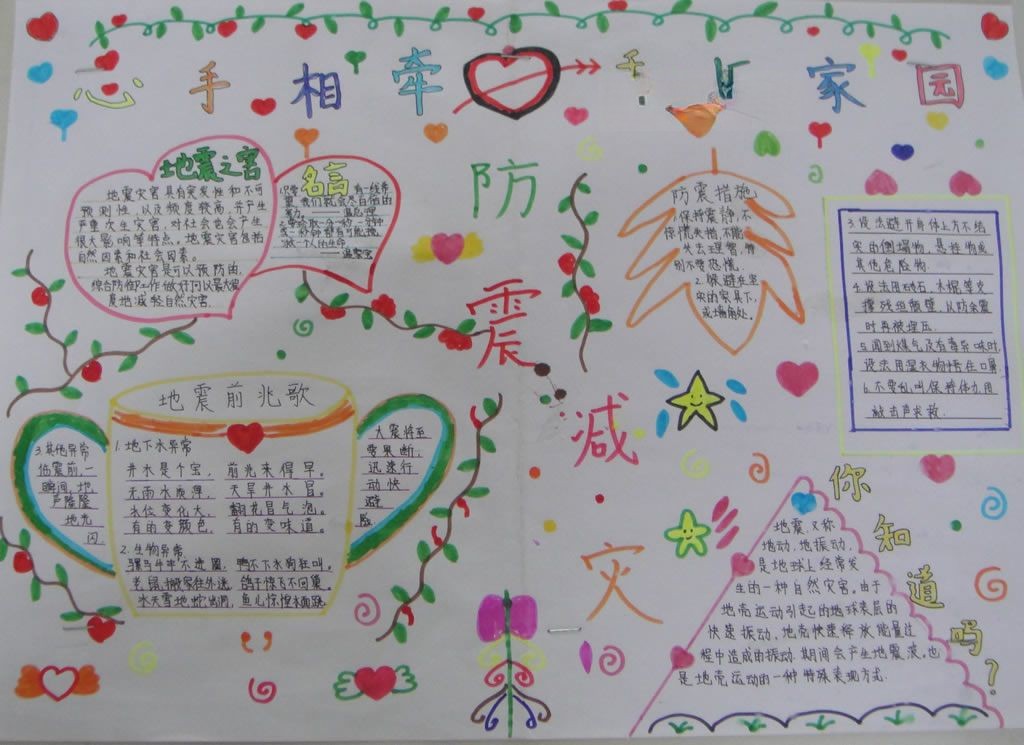 心 手 相 牵
家 园
防
震
减
灾
地震之害
地震灾害具有突发性和不可
预测性,以及频度较高,并产生
严重次生灾害,对社会也会产生
很大影响等特点。地震灾害包括
自然因素和社会因素。
地震灾害是可以预防的,
综合防御工作做好可以最大限
度地减轻自然灾害.
名言
防震措施
1.保持震静,不
惊慌失措,不能
失去理智,特
别不要恐慌.
2.躲避在坚
实的家具下,
或墙角处.
3.设法避开身体上方不结
实的倒塌物,悬挂物或
其他危险物.
4.设法用砖石、木棍等支
撑残垣断壁,以防余震
时再被埋压.
5.闻到煤气及有毒异味时,
设法用湿衣物捂住口鼻
6.不要乱叫保持体力用
敲击声求救.
地震前兆歌
1.地下水异常
井水是个宝, 前兆来得早。
无雨水质浑, 天旱井水冒。
水位变化大, 翻花冒气泡。
有的变颜色, 有的变味道。
2.生物异常
骡马牛羊不进圈, 鸭不下水狗狂叫.
老鼠搬家往外逃, 鸽子惊飞不回巢
冰天雪地蛇出洞, 鱼儿惊惶水面跳
3.其他异常
临震前,一
瞬间,地
声隆隆
地光
闪
大震将至
要果断,
迅速行
动快
避
险
你
知
道
吗
?
地震,又称
地动,地振动,
是地球上经常发
生的一种自然灾害.由于
地壳运动引起的地球表层的
快速振动,地壳快速释放能量过
程中造成的振动.期间会产生地震波,也
是地壳运动的一种特殊表现方式.